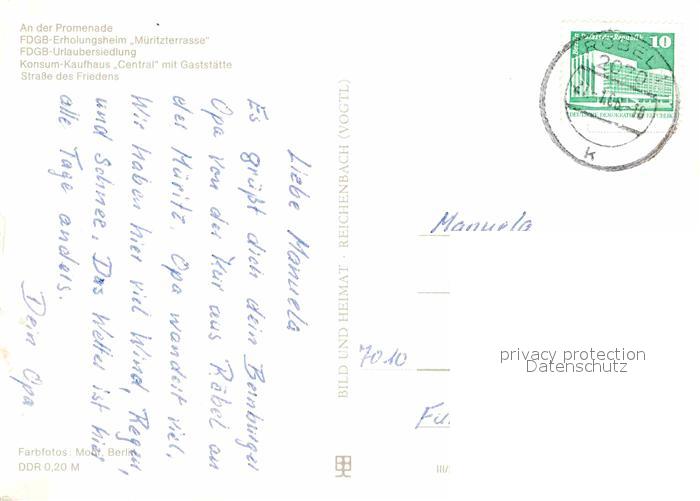 An der Promenade
FDGB-Erholungsheim „Müritzterrasse"
FDGB-Urlaubersiedlung
Konsum-Kaufhaus „Central" mit Gaststätte
Straße des Friedens
Liebe Manuela
Es grüßt dich dein Bernburger
Opa von der Kur aus Röbel an
der Müritz. Opa wandert viel.
Wir haben hier viel Wind, Regen,
und Schnee. Das Wetter ist hier
alle Tage anders.
Dein Opa.
Farbfotos: Mohr, Berlin
DDR 0,20 M
BILD UND HEIMAT · REICHENBACH (VOGTL)
III/
10
DEUTSCHE DEMOKRATISCHE REPUBLIK
RÖBEL
2070
k
Manuela
7010
privacy protection
Datenschutz